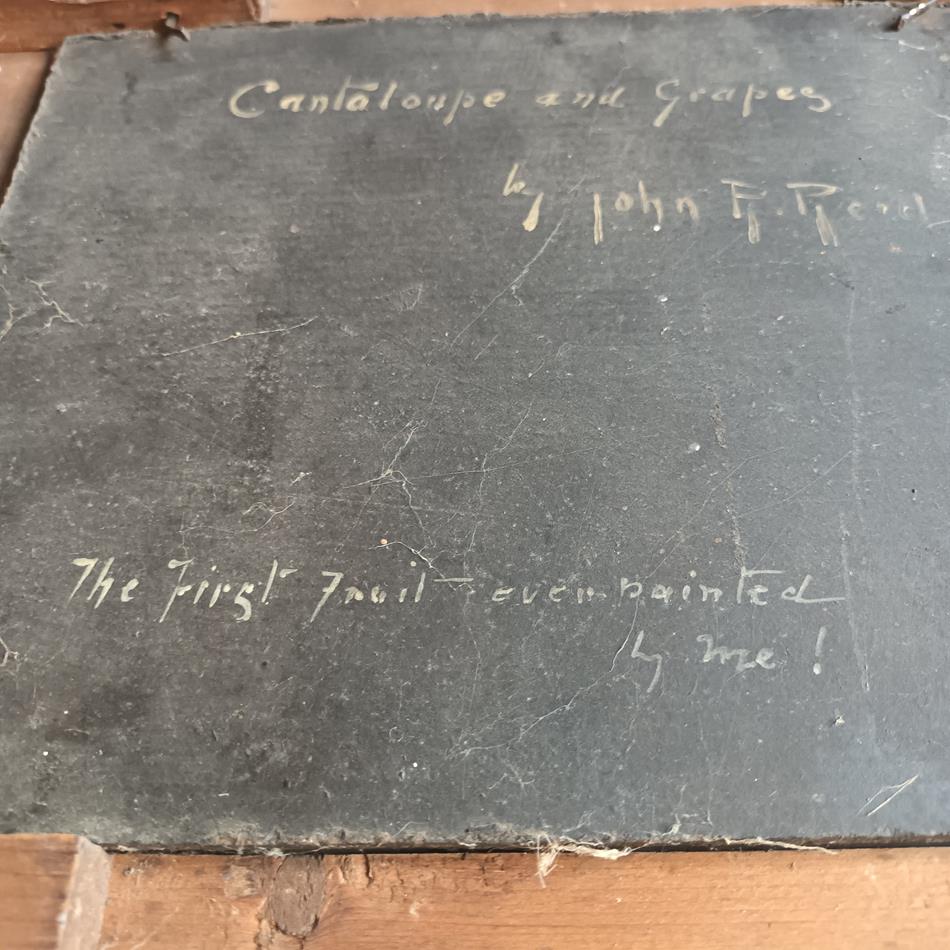 Cantaloupe and Grapes
by John R. Read
The First Fruit ever painted
by me!